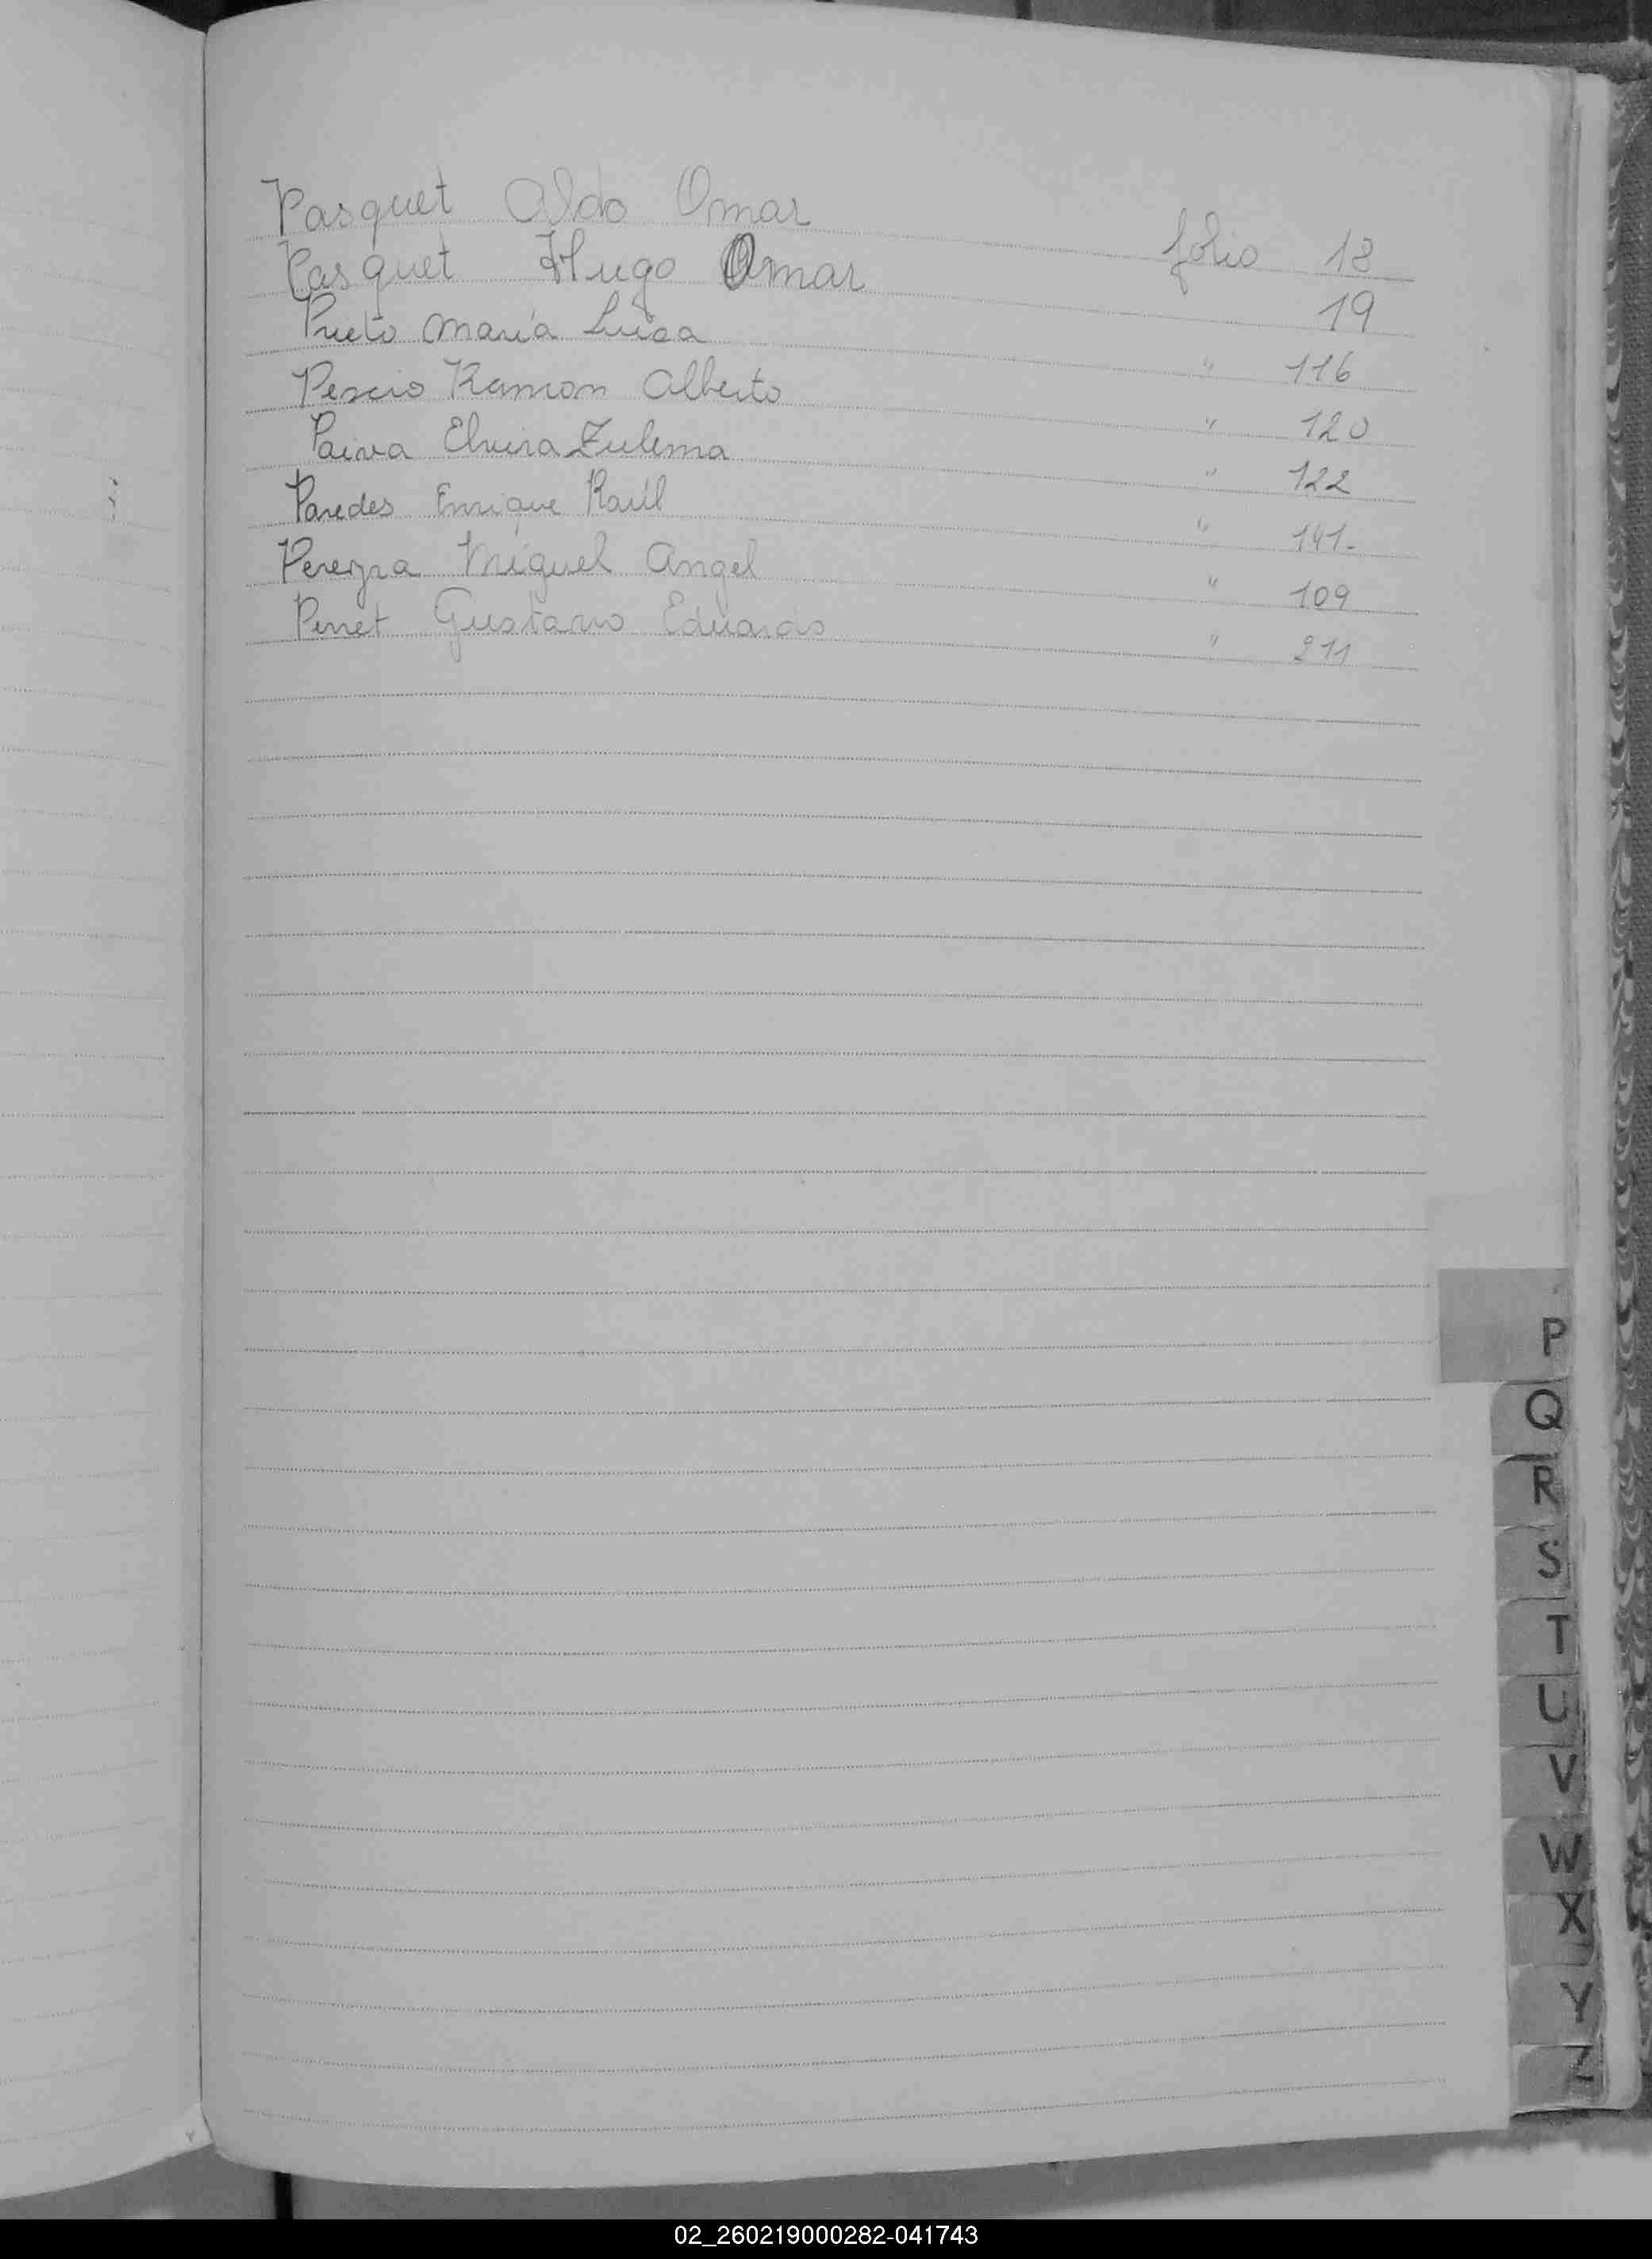 Pasquet Aldo Omar folio 18
Pasquet Hugo Omar 19
Prieto María Luisa " 116
Pescio Ramon Alberto " 120
Paiva Elvira Zulema " 122
Paredes Enrique Raúl " 141-
Pereyra Miguel Angel " 109
Perret Gustavo Eduardo " 211
P
Q
R
S
T
U
V
W
X
Y
Z
02_260219000282-041743